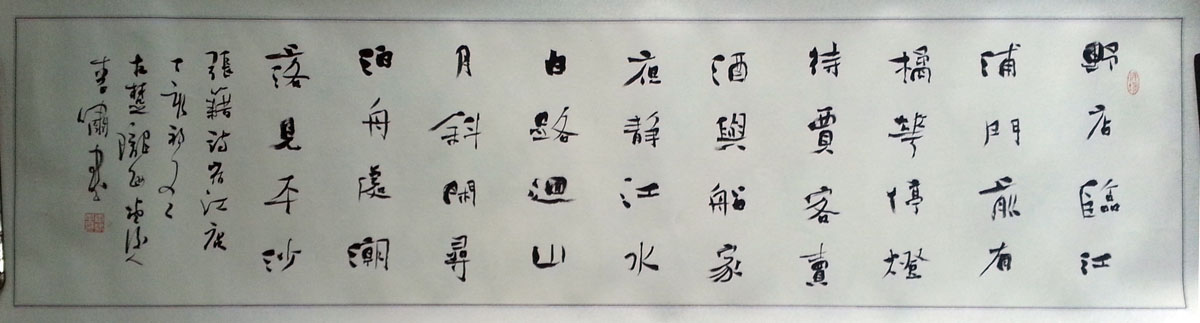 野店臨江
浦門前有
橘華停燈
待賈客賣
酒與船家
夜静江水
白路迴山
月斜閑尋
泊舟處潮
落見平沙
張籍詩宿江店
丁亥初
古楚隴西
書